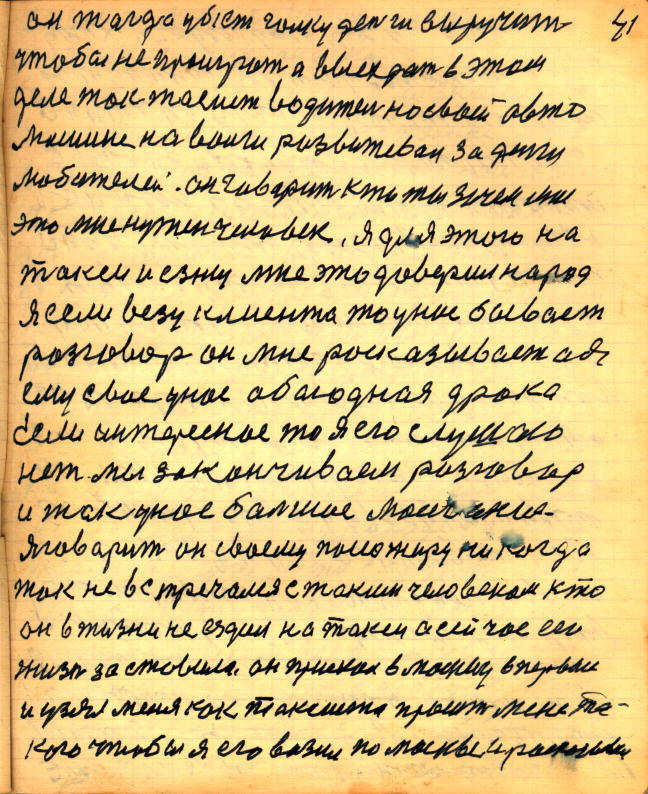 41
он тагда убєт голку денги выручит
чтобы не проиграт а выеждат в этом
деле так таксист водител на своей авто
машине на волги развитевал за денги
любителей. он говарит кто ты зачем мне
это мне нужен человек, я для этого на
такси и езжу мне это доверил народ
я если везу клиента то у нас бывает
розговор он мне росказывает а я
ему свое у нас обаюдная драка
если интересное то я его слушаю
нет мы законичиваем розговор
и так у нас балшое
я говарит он своему посожиру никогда
так не встречался с таким человеком кто
он в жизни не ездил на такси а сейчас его
жизн заставила. он приехал в москву впервые
и узял меня как таксиста просит мене та-
кого чтобы я его возил по москве и росказывал